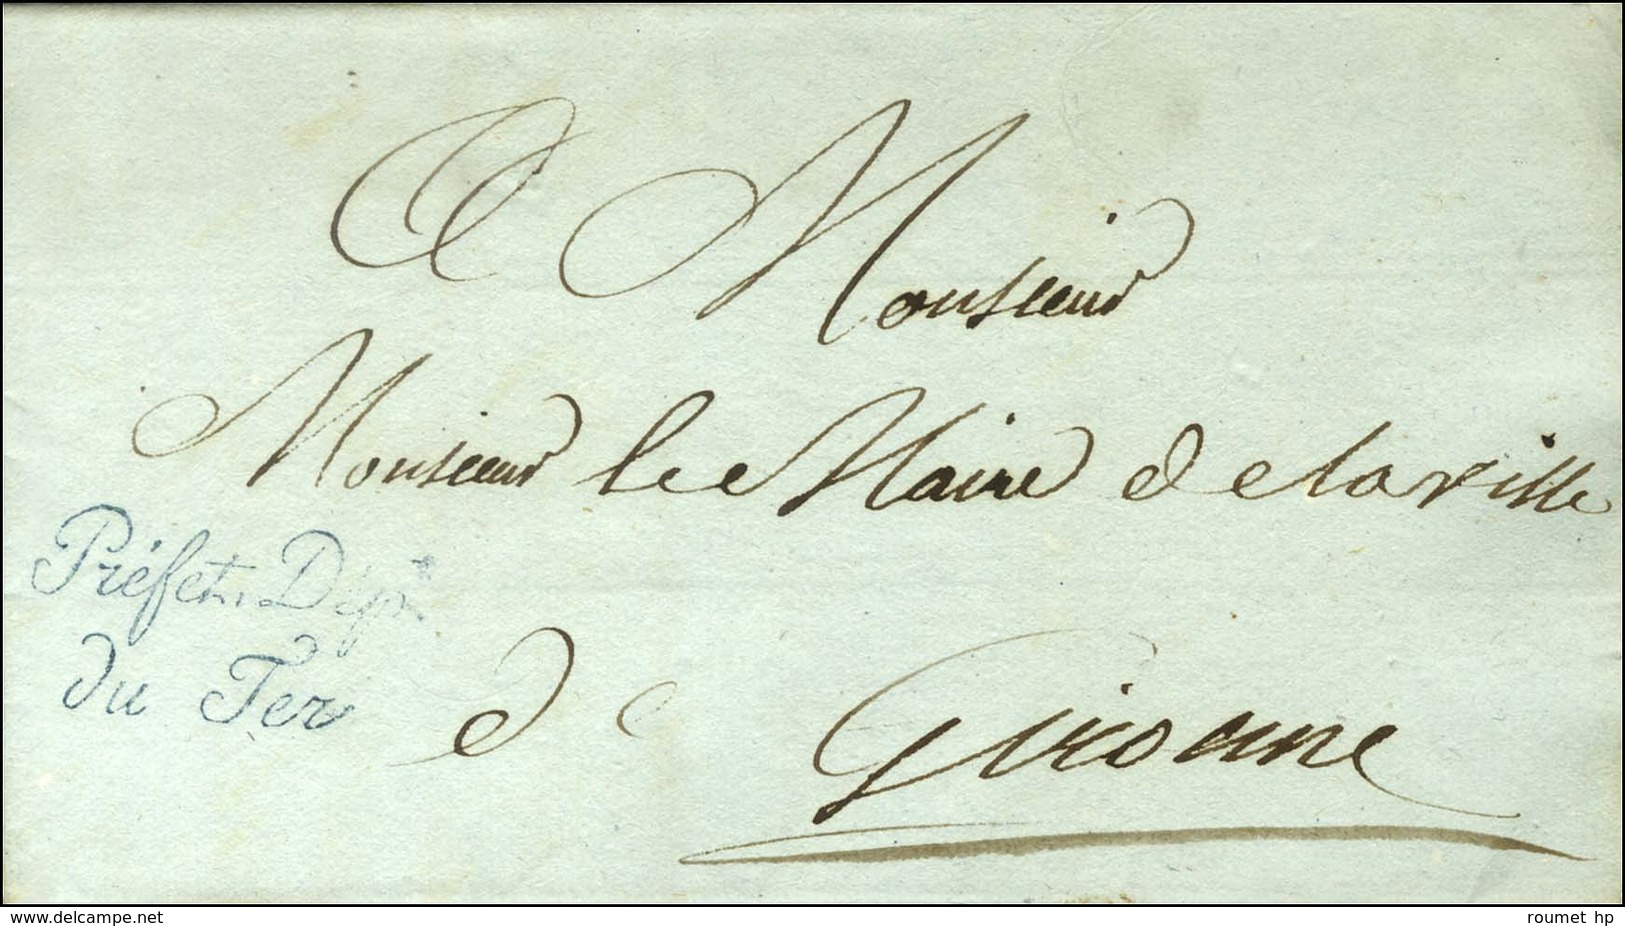 A Monsieur
Monsieur le Maire de la ville
Préfet. Dépt
du Ter
de Gironne
www.delcampe.net
roumet hp